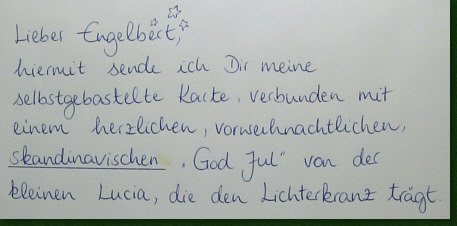 Lieber Engelbert,
hiermit sende ich Dir meine
selbstgebastelte Karte, verbunden mit
einem herzlichen, vorweihnachtlichen,
skandinavischen „God Jul" von der
kleinen Lucia, die den Lichterkranz trägt